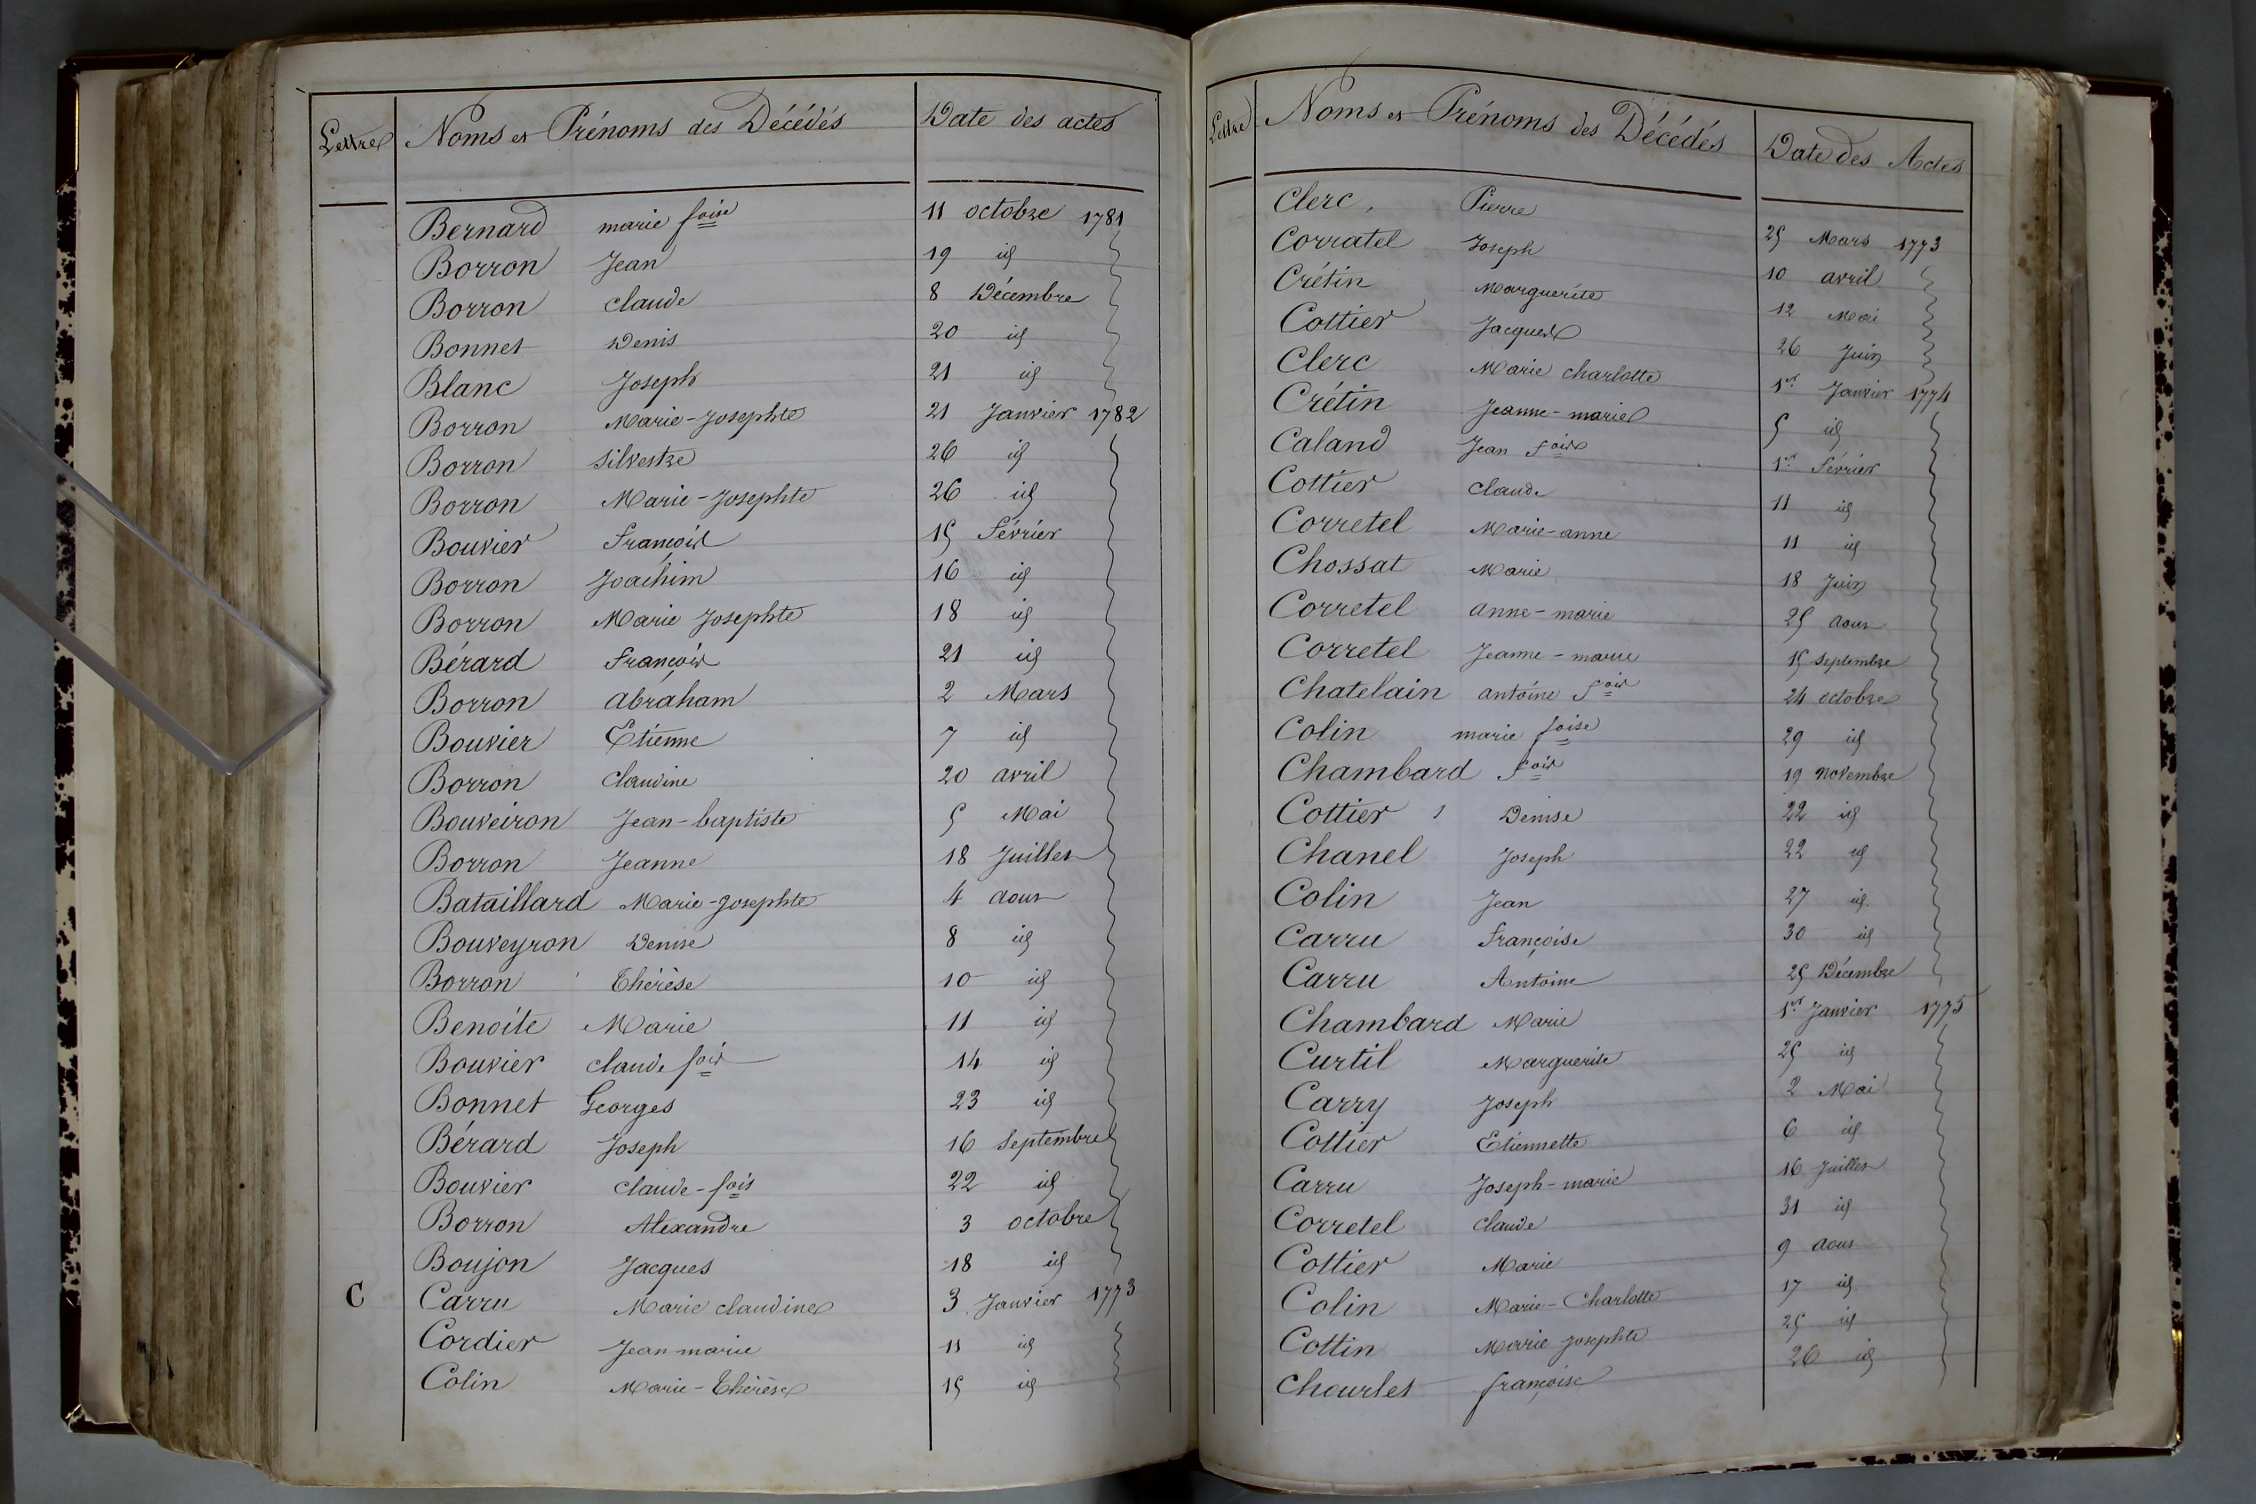 Lettres Noms et Prénoms des Décédés Date des actes
Bernard marie foise 11 octobre 1781
Borron Jean 19 id
Borron claude 8 Décembre
Bonnet Denis 20 id
Blanc Joseph 21 id
Borron Marie-Josephte 21 Janvier 1782
Borron silvestre 26 id
Borron Marie-Josephte 26 id
Bouvier françois 15 février
Borron Joachim 16 id
Borron Marie Josephte 18 id
Bérard françois 21 id
Borron abraham 2 Mars
Bouvier Etienne 7 id
Borron claudine 20 avril
Bouveiron Jean-baptiste 5 Mai
Borron Jeanne 18 Juillet
Bataillard Marie-Josephte 4 aout
Bouveyron Denise 8 id
Borron Thérèse 10 id
Benoite Marie 11 id
Bouvier claude fois 14 id
Bonnet Georges 23 id
Bérard Joseph 16 septembre
Bouvier claude-fois 22 id
Borron Alexandre 3 octobre
Boujon Jacques 18 id
C Carru Marie claudine 3 Janvier 1773
Cordier Jean-marie 11 id
Colin Marie-Thérèse 15 id
Lettre Noms et Prénoms des Décédés Date des Actes
Clerc Pierre 25 Mars 1773
Corratel Joseph 10 avril
Crétin Marguerite 12 Mai
Cottier Jacques 26 Juin
Clerc Marie charlotte 1er Janvier 1774
Crétin Jeanne-marie 5 id
Caland Jean fois 1er février
Cottier claude 11 id
Corretel Marie-anne 11 id
Chossat Marie 18 Juin
Corretel anne-marie 25 aout
Corretel Jeanne-marie 15 septembre
Chatelain antoine fois 24 octobre
Colin marie foise 29 id
Chambard fois 19 novembre
Cottier Denise 22 id
Chanel Joseph 22 id
Colin Jean 27 id
Carru françoise 30 id
Carru Antoine 25 Décembre
Chambard Marie 1er Janvier 1775
Curtil Marguerite 25 id
Carry Joseph 2 Mai
Cottier Etiennette 6 id
Carru Joseph-marie 16 Juillet
Corretel claude 31 id
Cottier Marie 9 aout
Colin Marie-Charlotte 17 id
Cottin Marie Josephte 25 id
Chourlet françoise 26 id